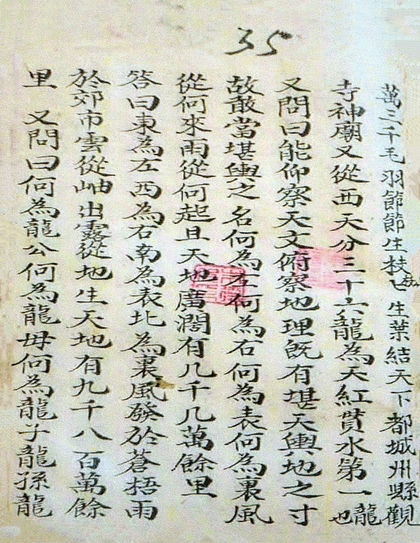 35
萬三千毛羽節節生枝每生葉結天下都城州縣觀
寺神廟又從西天分三十六龍為天紅貫水第一龍也
又問曰能仰察天文俯察地理既有堪天輿地之寸
故敢當堪輿之名何為左何為右何為表何為裏風
從何來雨從何起且天地廣濶有几千几萬餘里
答曰東為左西為右南為表北為裏風發於蒼捂雨
於郊市雲從岫出靈從地生天地有九千八百萬餘
里 又問曰何為龍公何為龍母何為龍子龍孫龍